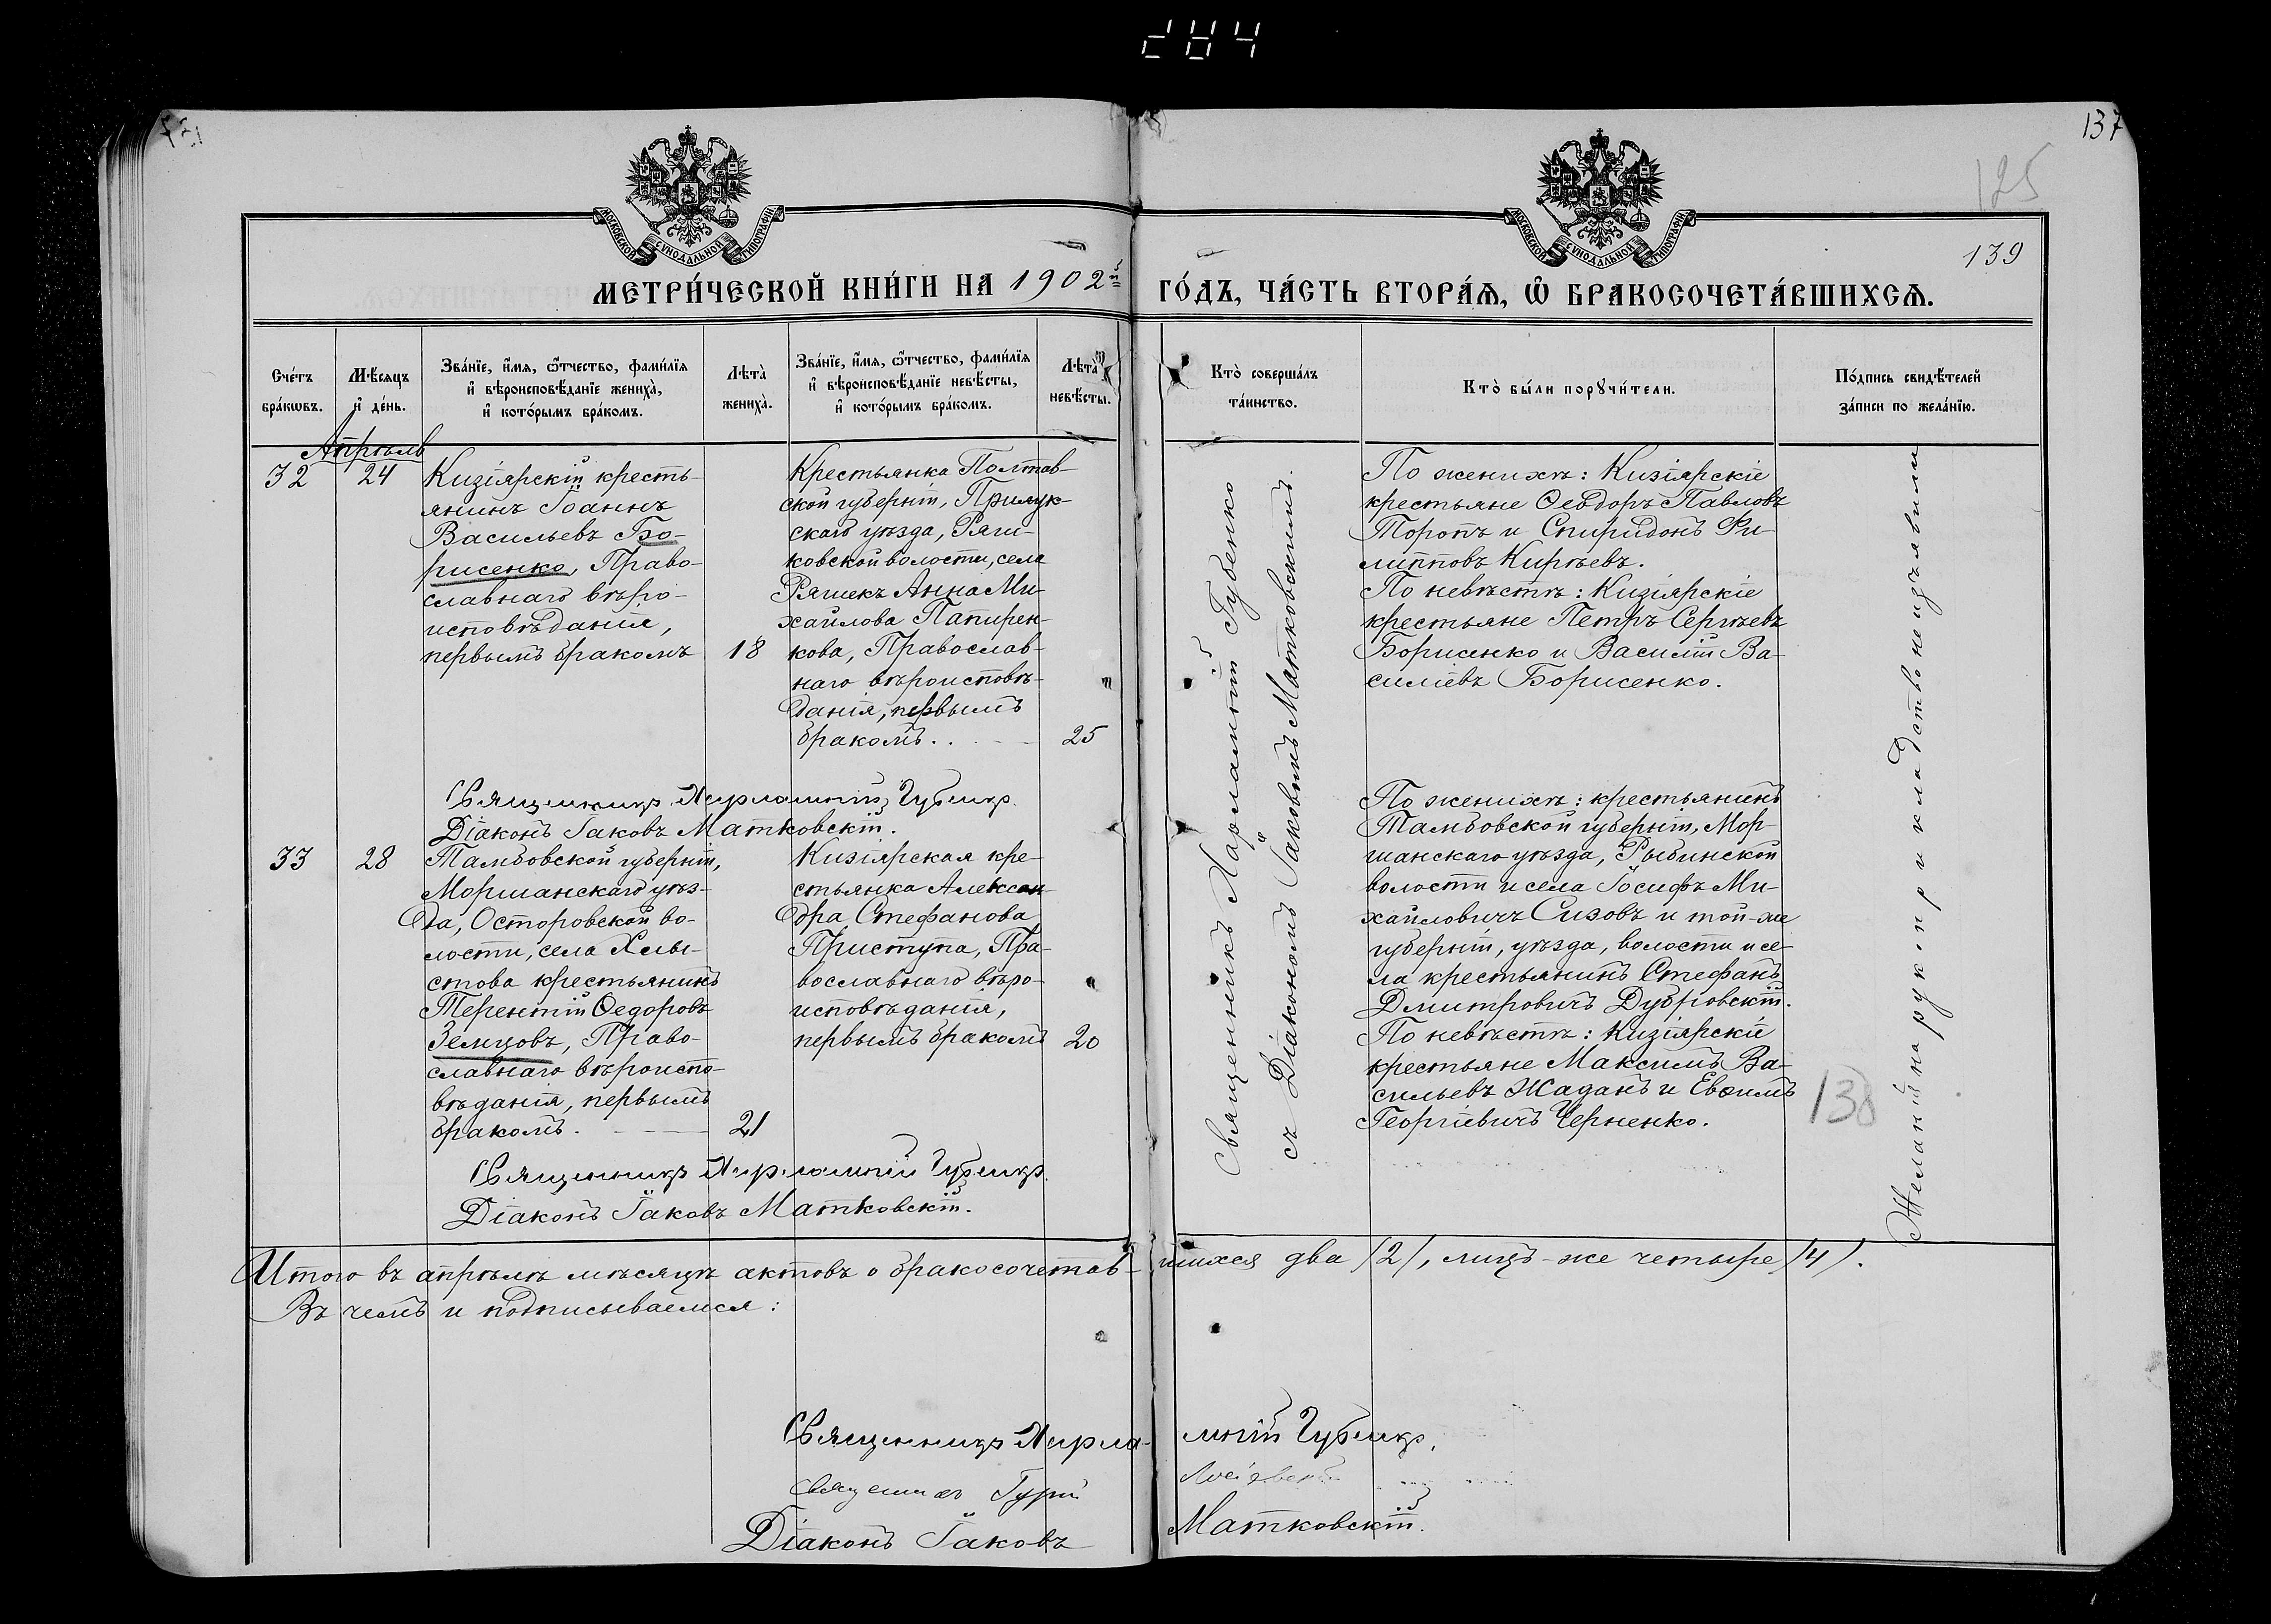 284
137
125
139
МОСКОВСКОЙ СѴНОДАЛЬНОЙ ТИПОГРАФІИ
МОСКОВСКОЙ СѴНОДАЛЬНОЙ ТИПОГРАФІИ
МЕТРИ́ЧЕСКОЙ КНИ́ГИ НА 1902й ГО́ДЪ, ЧА́СТЬ ВТОРА́Ѧ, Ѽ БРАКОСОЧЕТА́ВШИХСѦ.
Сче́тъ
бра́кѡвъ.
Мѣ́сяцъ
и҆ де́нь.
Зва́нїе, и҆́мѧ, ѻ҆́тчество, фами́лїѧ
и҆ вѣроисповѣ́данїе жениха̀,
и҆ кото́рымъ бра́комъ.
Лѣта̀
жениха̀.
Зва́нїе, и҆́мѧ, ѻ҆́тчество, фами́лїѧ
и҆ вѣроисповѣ́данїе невѣ́сты,
и҆ кото́рымъ бра́комъ.
Лѣта̀
невѣ́сты.
Кто̀ соверша́лъ
та́инство.
Кто̀ бы́ли порꙋчи́тели.
По́дпись свидѣ́телей
за́писи по жела́нїю.
Апрѣль
32
24
Кизіярскій кресть-
янинъ Іоаннъ
Васильевъ Бо-
рисенко, Право-
славнаго вѣро-
исповѣданія,
первымъ бракомъ
18
Крестьянка Полтав-
ской губерніи, Прилук-
скаго уѣзда, Ряш-
ковской волости, села
Ряшекъ Анна Ми-
хайлова Папирен-
кова, Православ-
наго вѣроисповѣ-
данія, первымъ
бракомъ.
25
Священникъ Харлампій Губенко
съ Діакономъ Іаковымъ Матковскимъ.
По женихѣ: Кизіярскіе
крестьяне Ѳеодоръ Павловъ
Торопъ и Спиридонъ Фи-
липповъ Кирѣевъ.
По невѣстѣ: Кизіярскіе
крестьяне Петръ Сергѣевъ
Борисенко и Василій Ва-
силіевъ Борисенко.
Желаній на рукоприкладство не изъявили
Священникъ Харлампій Губенко.
Діаконъ Іаковъ Матковскій.
33
28
Тамбовской губерніи,
Моршанскаго уѣз-
да, Осторовской во-
лости, села Хлы-
стова крестьянинъ
Терентій Ѳедоровъ
Земцовъ, Право-
славнаго вѣроиспо-
вѣданія, первымъ
бракомъ.
21
Кизіярская кре-
стьянка Алексан-
дра Стефанова
Приступа, Пра-
вославнаго вѣро-
исповѣданія,
первымъ бракомъ
20
По женихѣ: крестьянинъ
Тамбовской губерніи, Мор-
шанскаго уѣзда, Рыбинской
волости и села Іосифъ Ми-
хайловичъ Сизовъ и той-же
губерніи, уѣзда, волости и се-
ла крестьянинъ Стефанъ
Дмитровичъ Дубровскій.
По невѣстѣ: Кизіярскіе
крестьяне Максимъ Ва-
сильевъ Жаданъ и Евѳимъ
Георгіевичъ Черненко.
138
Священникъ Харлампій Губенко.
Діаконъ Іаковъ Матковскій.
Итого въ апрѣлѣ мѣсяцѣ актовъ о бракосочетав-шихся два /2/, лицъ-же четыре /4/.
Въ чемъ и подписываемся:
Священникъ Харлампій Губенко.
Священникъ Гурій
Діаконъ Іаковъ Матковскій.